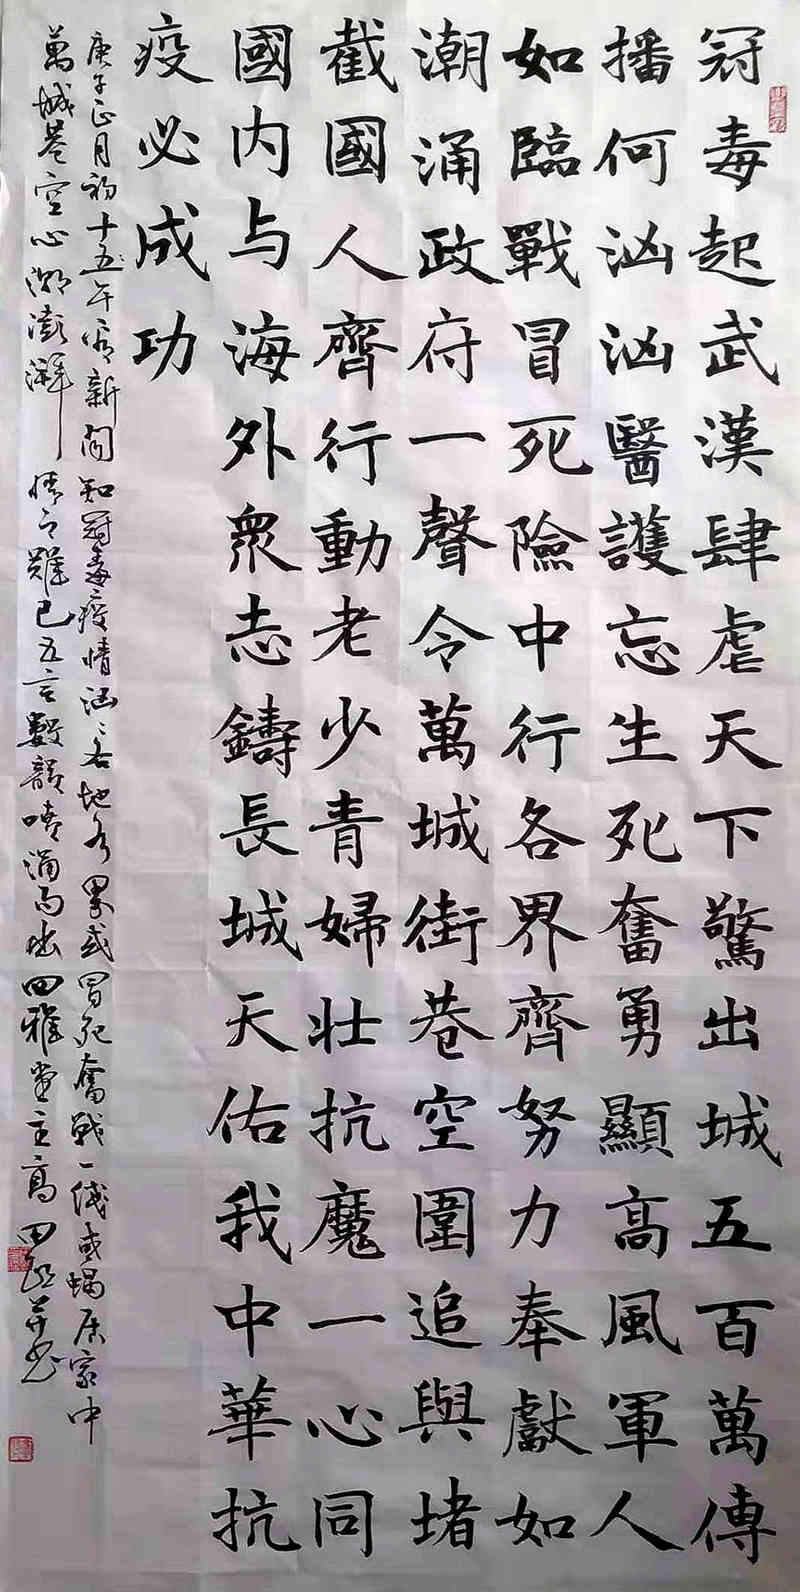 冠毒起武漢肆虐天下驚出城五百萬傳
播何汹汹醫護忘生死奮勇顯高風軍人
如臨戰冒死險中行各界齊努力奉獻如
潮涌政府一聲令萬城街巷空圍追與堵
截國人齊行動老少青婦壯抗魔一心同
國内与海外衆志鑄長城天佑我中華抗
疫必成功
庚子正月初十五午新闻知冠毒疫情汹〻各地或冒死奮戰一线或蝸居家中
萬城巷空心潮澎湃情之難已五言數韻噴涌而出田雅堂主高田并书